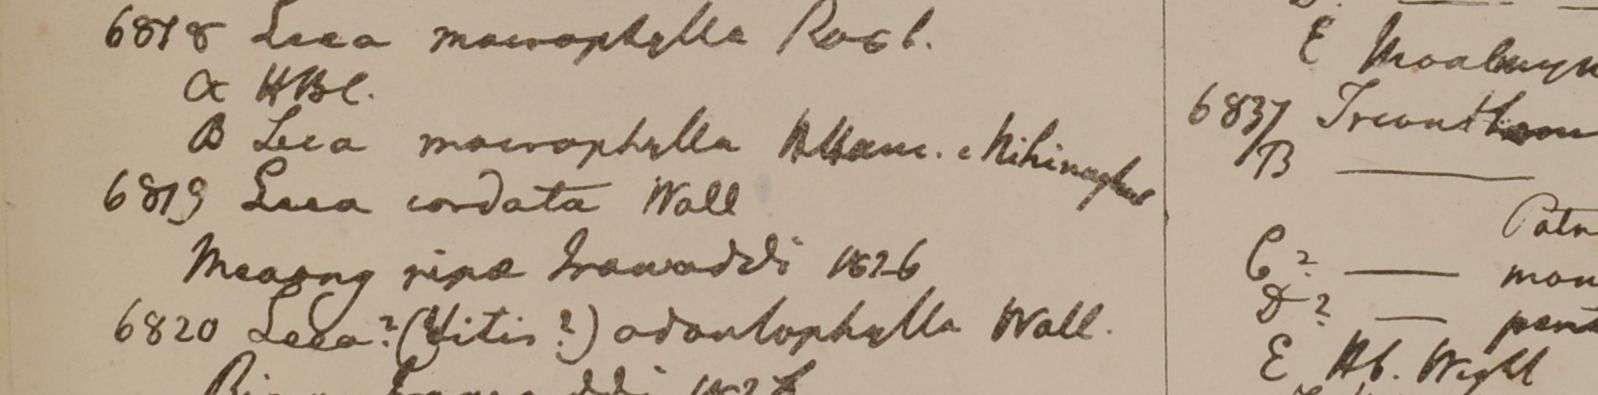 6818 Leea macrophylla Roxb.
α HBC.
B Leea macrophylla HHam.
6819 Leea cordata Wall
Meaong ripæ Irawaddi 1826
6820 Leea? (Vitis?) odontophylla Wall.
1826
E Moalmyn
6837
B ———
Patn
C? ——— mon
D? —— pent
E Hb. Wight